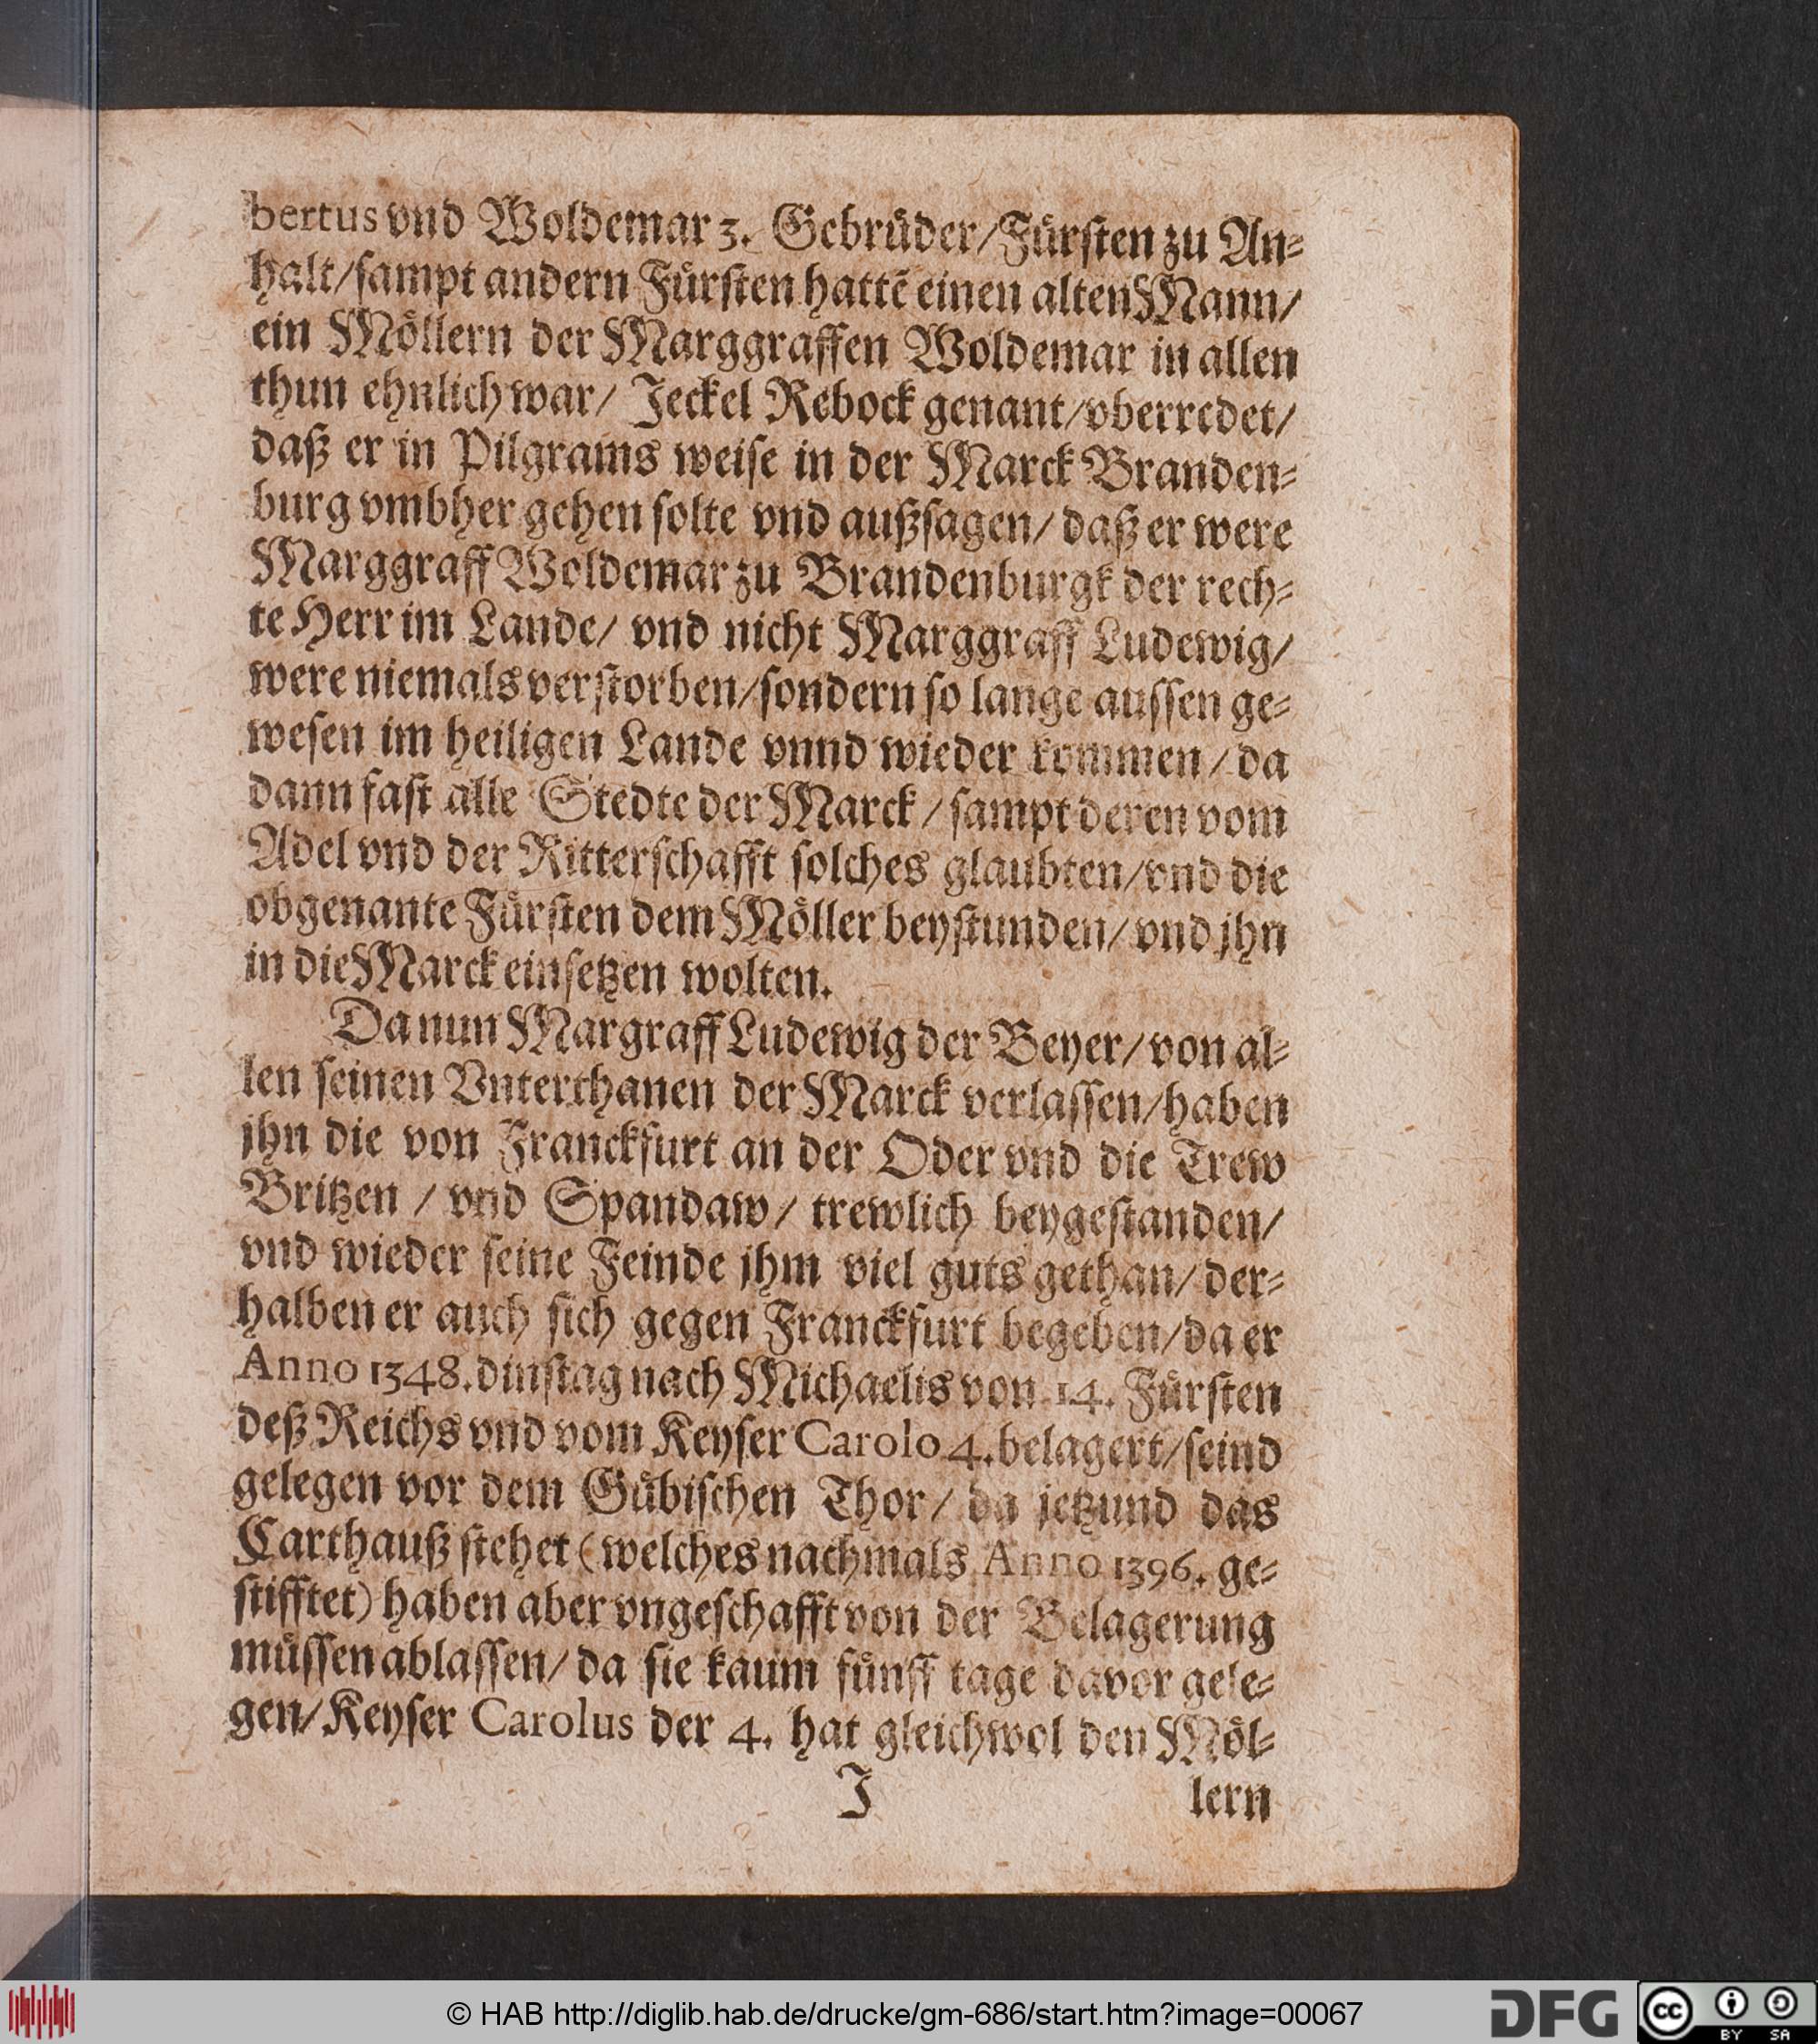 bertus vnd Woldemar 3. Gebrůder/Fůrſten zu An⸗
halt/ſampt andern Fůrſten hattē einen alten Mann/
ein Mőllern der Marggraffen Woldemar in allen
thun ehnlich war/ Jeckel Rebock genant/vberredet/
daß er in Pilgrams weiſe in der Marck Branden⸗
burg vmbher gehen ſolte vnd außſagen/ daß er were
Marggraff Woldemar zu Brandenburgk der rech⸗
te Herr im Lande/ vnd nicht Marggraff Ludewig/
were niemals verſtorben/ſondern ſo lange auſſen ge⸗
weſen im heiligen Lande vnnd wieder kommen/da
dann faſt alle Stedte der Marck/ſampt deren vom
Adel vnd der Ritterſchafft ſolches glaubten/vnd die
obgenante Fůrſten dem Mőller beyſtunden/vnd jhn
in die Marck einſetzen wolten.
Da nun Margraff Ludewig der Beyer/von al⸗
len ſeinen Vnterthanen der Marck verlaſſen/haben
jhn die von Franckfurt an der Oder vnd die Trew
Britzen/vnd Spandaw/ trewlich beygeſtanden/
vnd wieder ſeine Feinde jhm viel guts gethan/der⸗
halben er auch ſich gegen Franckfurt begeben/da er
Anno 1348. dinſtag nach Michaelis von 14. Fůrſten
deß Reichs vnd vom Keyſer Carolo 4. belagert/ſeind
gelegen vor dem Gůbiſchen Thor/ da jetzund das
Carthauß ſtehet (welches nachmals Anno 1396. ge⸗
ſtifftet) haben aber vngeſchafft von der Belagerung
můſſen ablaſſen/ da ſie kaum fůnff tage davor gele⸗
gen/Keyſer Carolus der 4. hat gleichwol den Mől⸗
J lern
© HAB http://diglib.hab.de/drucke/gm-686/start.htm?image=00067
DFG
cc BY SA